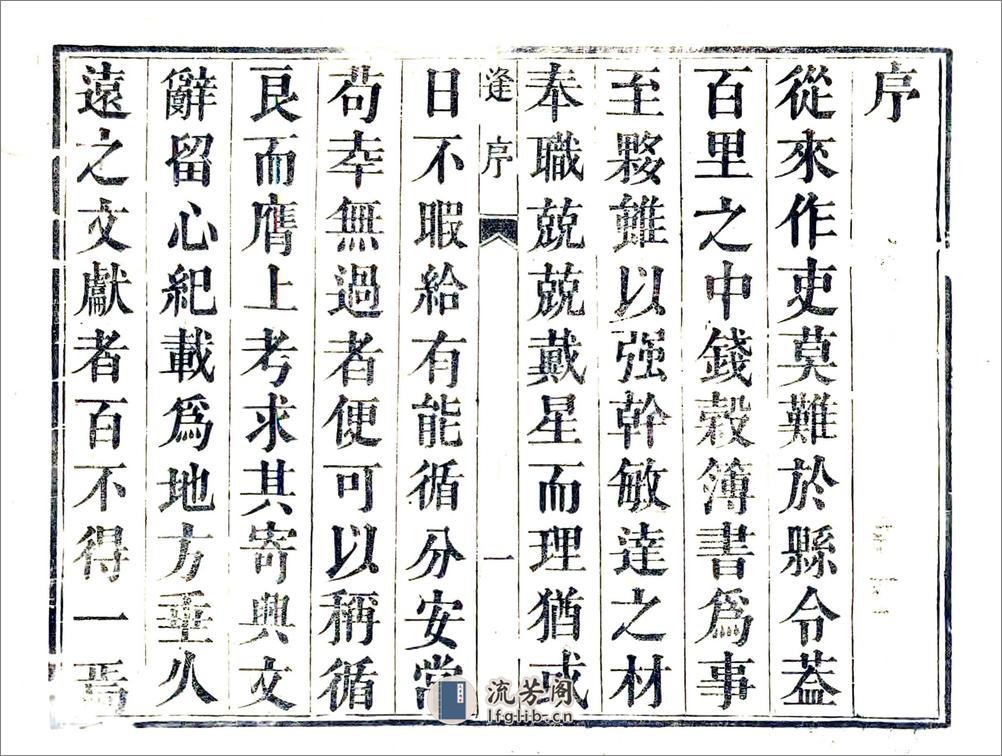 序
從來作吏莫難於縣令葢
百里之中錢榖簿書爲事
至夥雖以强幹敏達之材
奉職兢兢戴星而理猶或
逢序 一
日不暇給有能循分安常
苟幸無過者便可以稱循
良而膺上考求其寄興文
辭留心紀載爲地方垂久
遠之文獻者百不得一焉
流芳阁
lfglib.cn